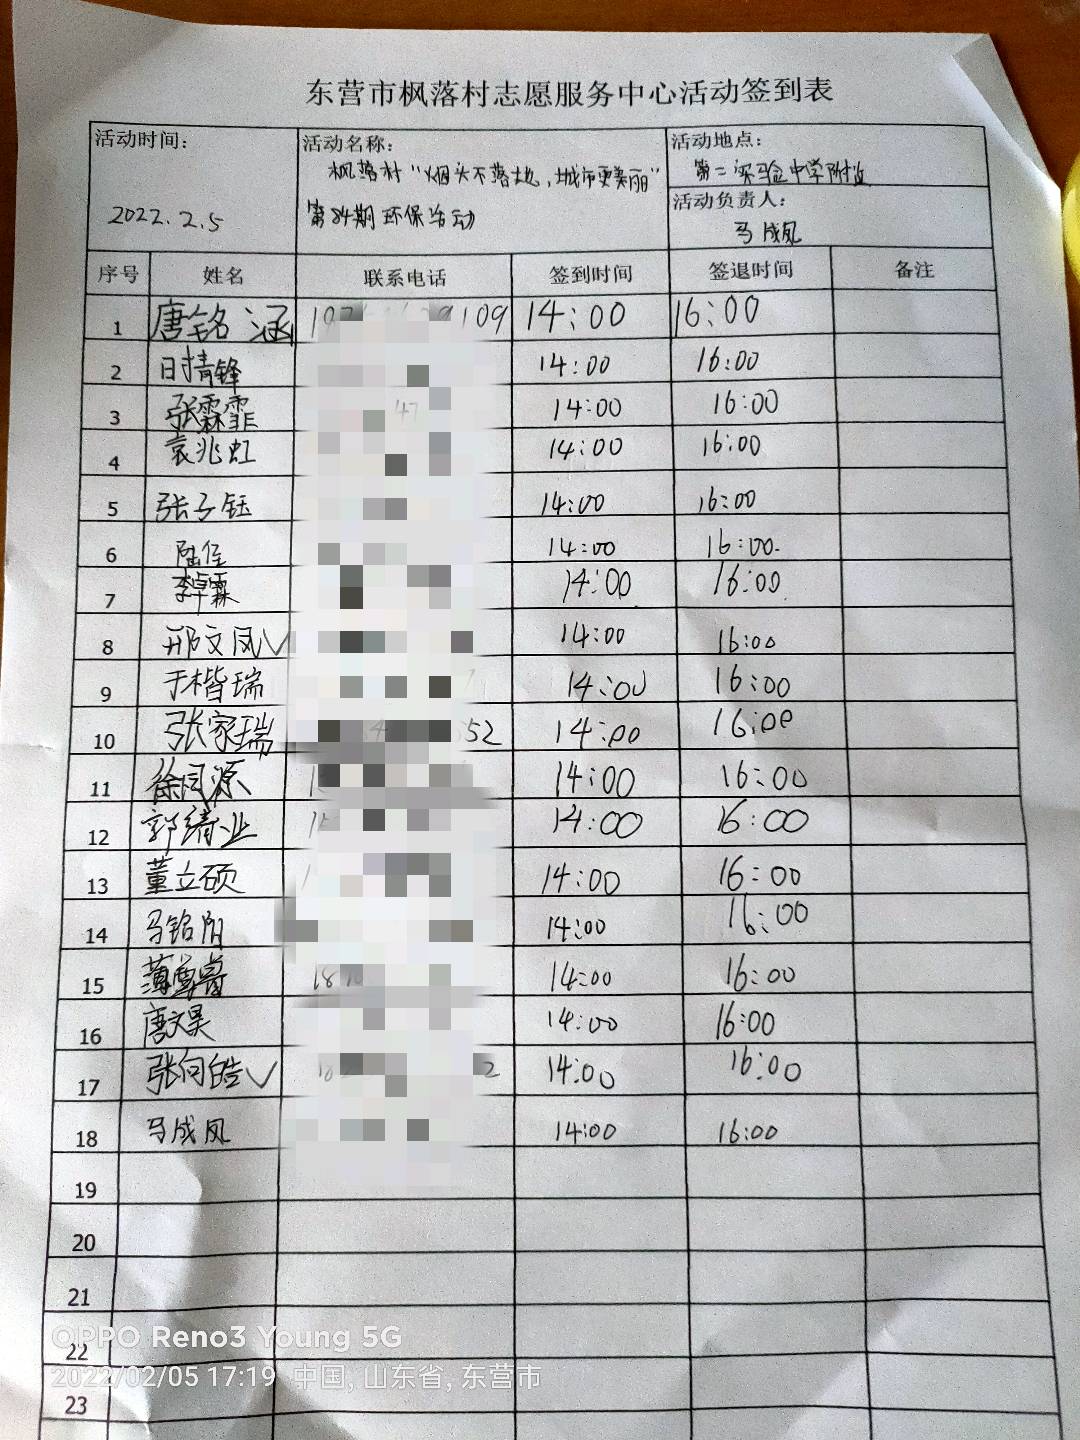 东营市枫落村志愿服务中心活动签到表
活动时间： 活动名称： 活动地点：
枫落村“烟头不落地，城市更美丽” 第二实验中学附近
2022.2.5 第84期环保活动 活动负责人：
马成凤
序号 姓名 联系电话 签到时间 签退时间 备注
1 唐铭涵 109 14:00 16:00
2 时清锋 14:00 16:00
3 张霖霏 47 14:00 16:00
4 袁兆虹 14:00 16:00
5 张子钰 14:00 16:00
6 陆佳 14:00 16:00.
7 李卓霖 14:00 16:00
8 邢文凤√ 14:00 16:00
9 于楷瑞 14:00 16:00
10 张家瑞 52 14:00 16:00
11 徐同源 14:00 16:00
12 郭靖业 14:00 16:00
13 董立硕 14:00 16:00
14 马铭阳 14:00 16:00
15 薄尊睿 18 14:00 16:00
16 唐文昊 14:00 16:00
17 张向皓√ 2 14:00 16:00
18 马成凤 14:00 16:00
19
20
21
22
23
OPPO Reno3 Young 5G
2022/02/05 17:19 中国, 山东省, 东营市